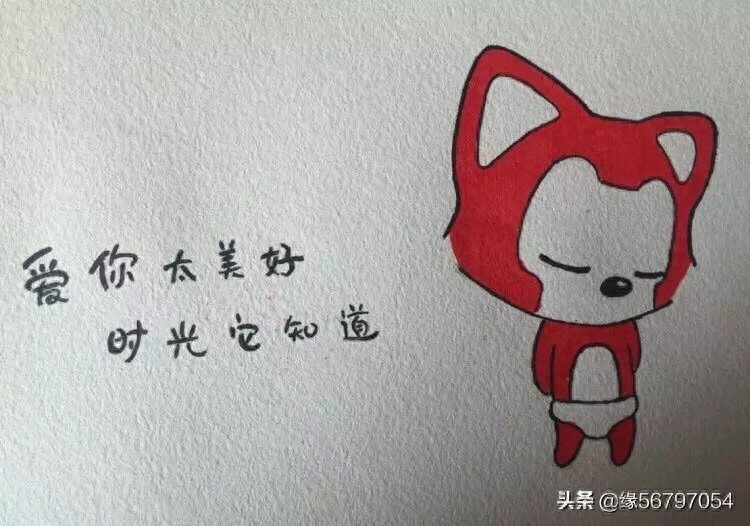 爱你太美好
时光它知道
头条 @缘56797054